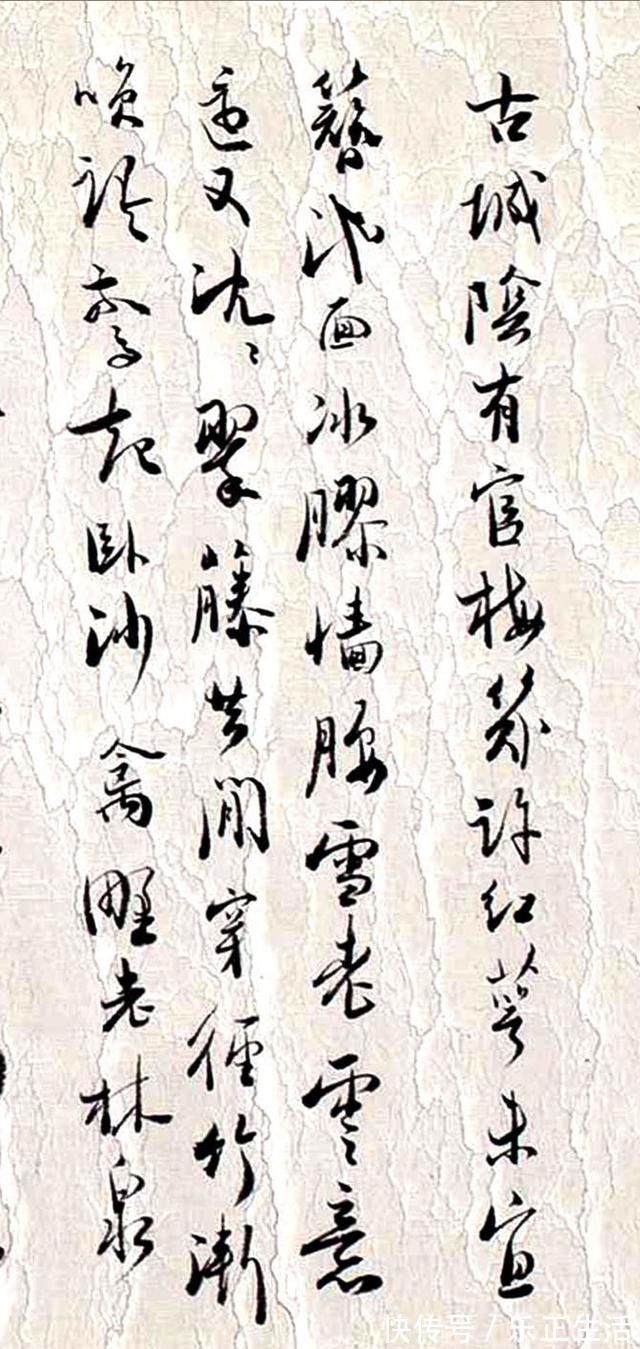 古城陰有官梅幾許紅萼未宜
簪池面冰膠墻腰雪老雲意
還又沈〻翠藤共閒穿徑竹漸
咲語驚起臥沙禽野老林泉
快传号 / 乐正生活